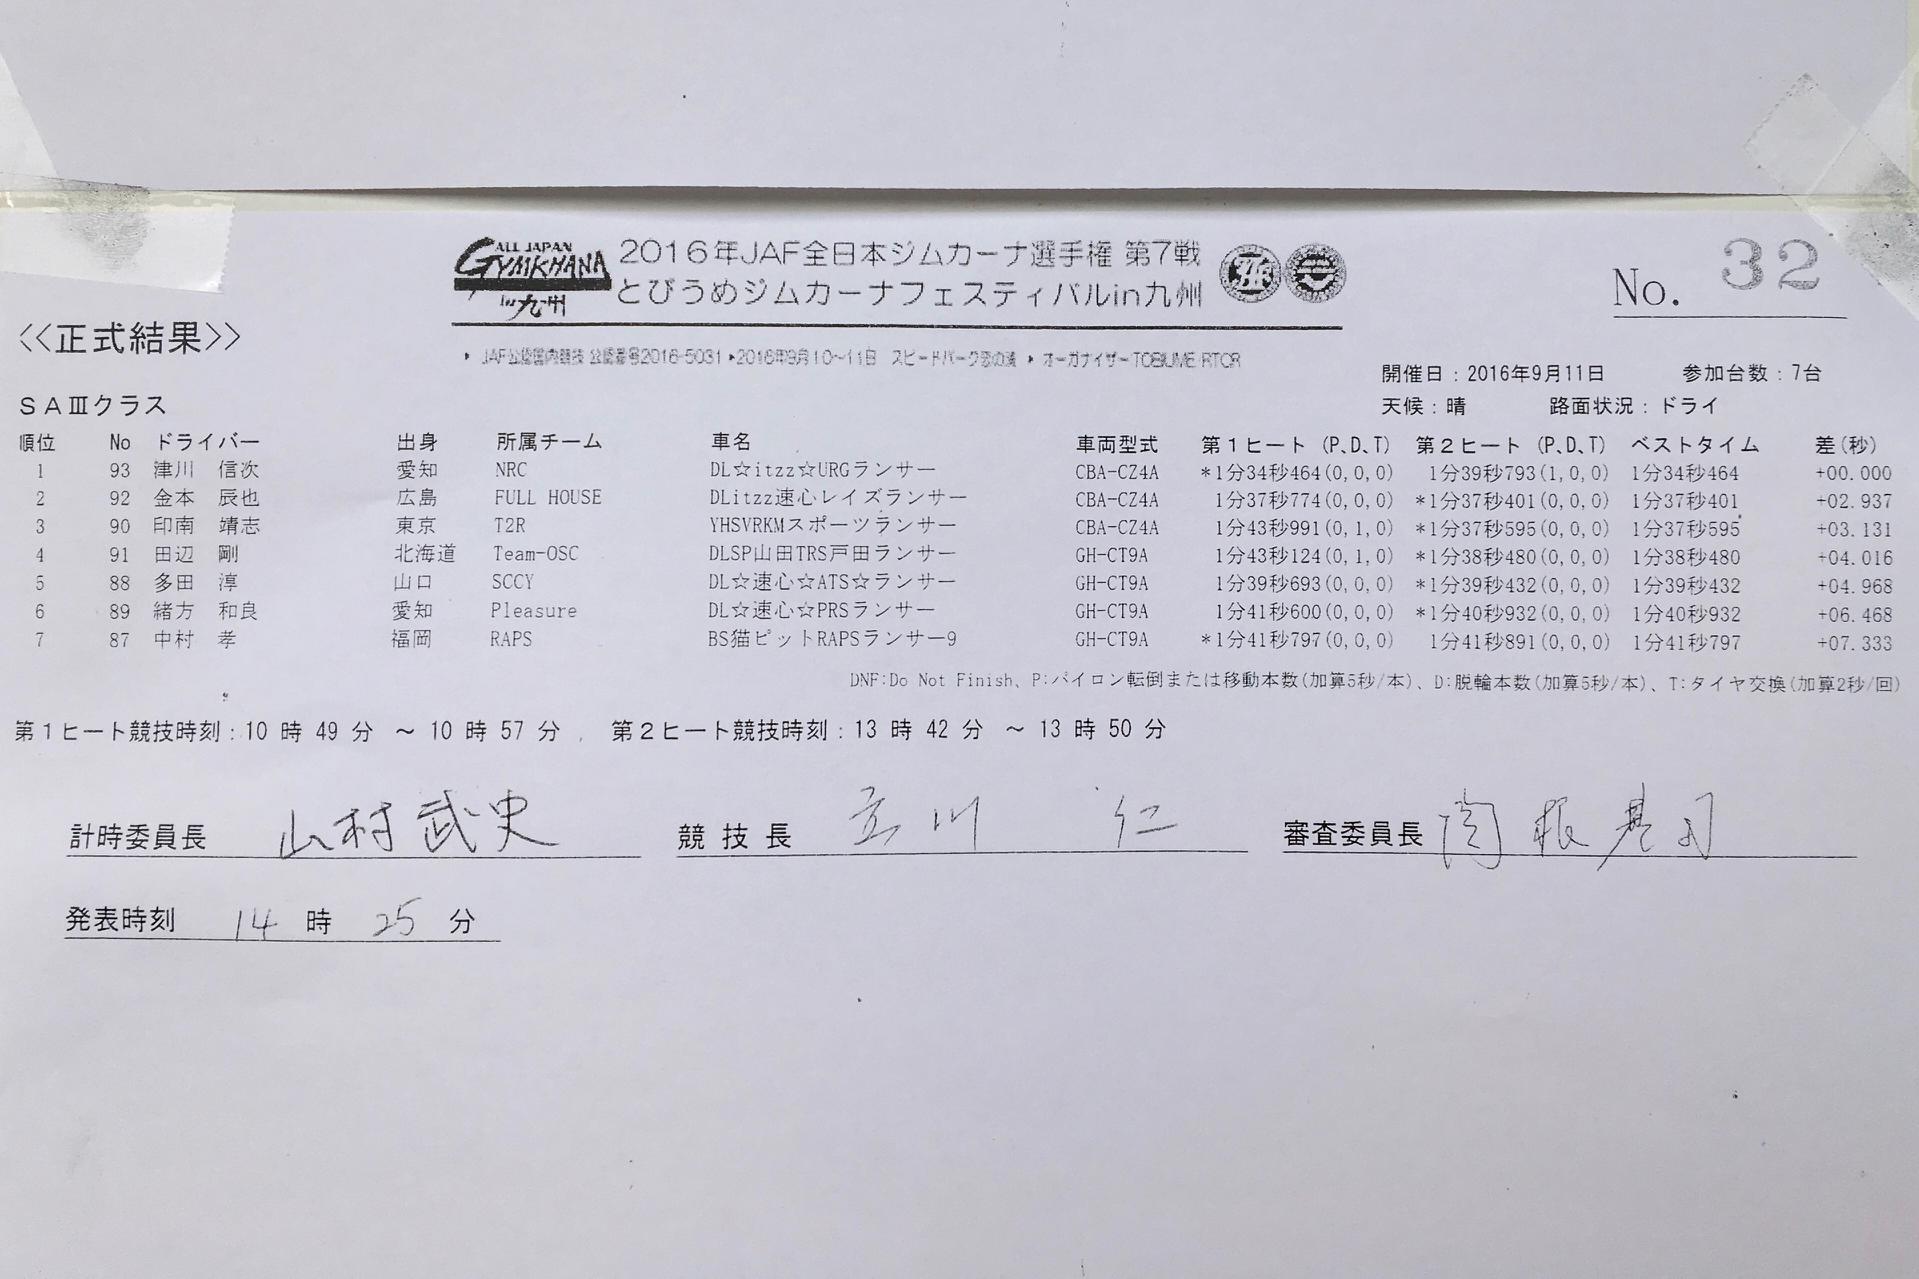 ALL JAPAN
GYMKHANA
in九州
2016年JAF全日本ジムカーナ選手権 第7戦
とびうめジムカーナフェスティバルin九州
No. 32
<<正式結果>>
JAF公認国内競技 公認番号2016-5031 2016年9月10~11日 スピードパーク恋の浦 オーガナイザーTOBIUME RTCR
開催日：2016年9月11日 参加台数：7台
SAⅢクラス
天候：晴 路面状況：ドライ
順位 No ドライバー 出身 所属チーム 車名 車両型式 第1ヒート (P,D,T) 第2ヒート (P,D,T) ベストタイム 差(秒)
1 93 津川 信次 愛知 NRC DL☆itzz☆URGランサー CBA-CZ4A *1分34秒464(0,0,0) 1分39秒793(1,0,0) 1分34秒464 +00.000
2 92 金本 辰也 広島 FULL HOUSE DLitzz速心レイズランサー CBA-CZ4A 1分37秒774(0,0,0) *1分37秒401(0,0,0) 1分37秒401 +02.937
3 90 印南 靖志 東京 T2R YHSVRKMスポーツランサー CBA-CZ4A 1分43秒991(0,1,0) *1分37秒595(0,0,0) 1分37秒595 +03.131
4 91 田辺 剛 北海道 Team-OSC DLSP山田TRS戸田ランサー GH-CT9A 1分43秒124(0,1,0) *1分38秒480(0,0,0) 1分38秒480 +04.016
5 88 多田 淳 山口 SCCY DL☆速心☆ATS☆ランサー GH-CT9A 1分39秒693(0,0,0) *1分39秒432(0,0,0) 1分39秒432 +04.968
6 89 緒方 和良 愛知 Pleasure DL☆速心☆PRSランサー GH-CT9A 1分41秒600(0,0,0) *1分40秒932(0,0,0) 1分40秒932 +06.468
7 87 中村 孝 福岡 RAPS BS猫ピットRAPSランサー9 GH-CT9A *1分41秒797(0,0,0) 1分41秒891(0,0,0) 1分41秒797 +07.333
DNF:Do Not Finish、P:パイロン転倒または移動本数(加算5秒/本)、D:脱輪本数(加算5秒/本)、T:タイヤ交換(加算2秒/回)
第1ヒート競技時刻：10 時 49 分 ～ 10 時 57 分 第2ヒート競技時刻：13 時 42 分 ～ 13 時 50 分
計時委員長 山村武史 競技長 立川 仁 審査委員長
発表時刻 14 時 25 分